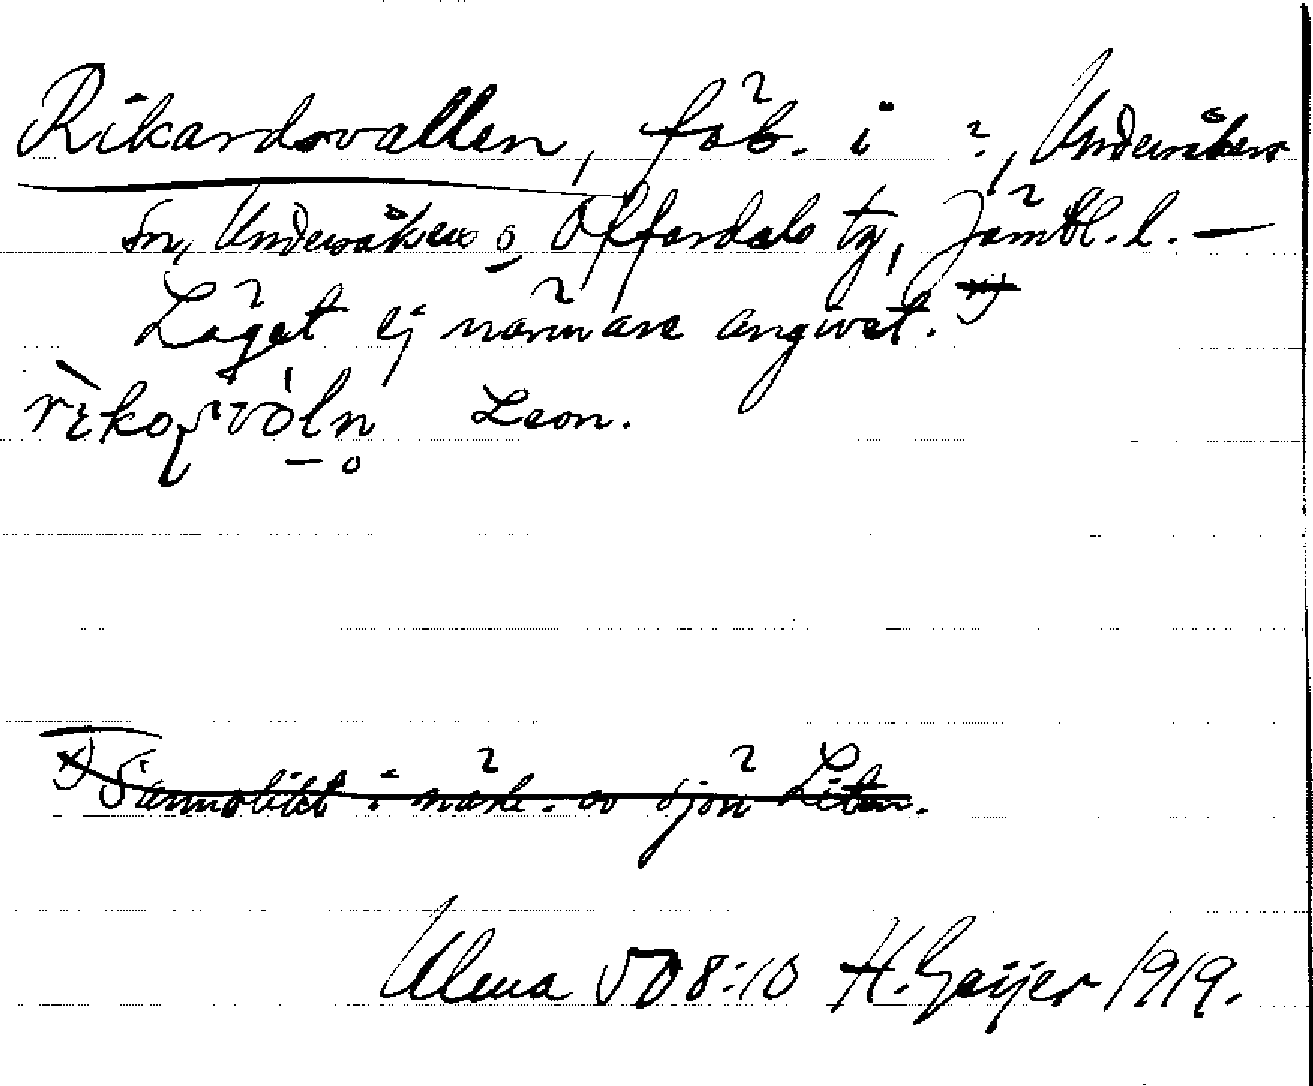 Rikardsvallen, fäb. i ?, Undersåkers
sn, Undersåkers o. Offerdals tg, Jämtl. l. —
Läget ej närmare angivet. x)
Leon.
x) Sannolikt i närh. av sjön Liten.
Ulma 508:10 H. Geijer 1919.